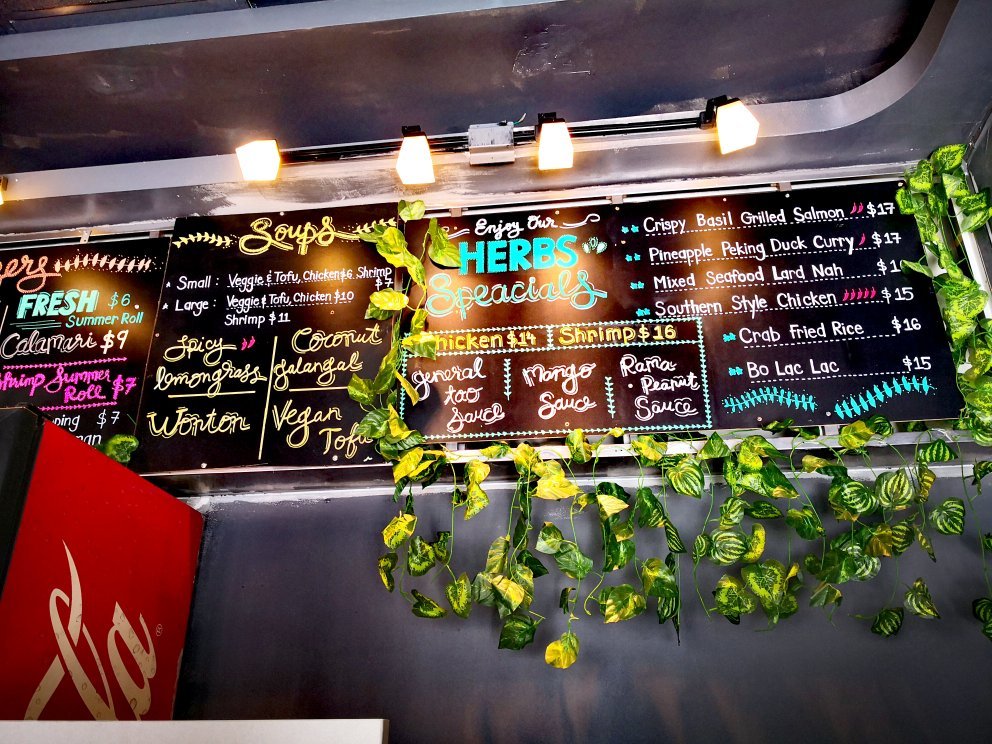 FRESH $6
Summer Roll
Calamari $9
Shrimp Summer
Roll $7
$7
Soups
Small : Veggie & Tofu, Chicken $6 Shrimp
$7
Large : Veggie & Tofu, Chicken $10
Shrimp $11
Spicy
lemongrass
Coconut
galangal
Wonton
Vegan
Tofu
Enjoy Our
HERBS
Speacials
Chicken $14
Shrimp $16
general
tao
sauce
mango
Sauce
Rama
Peanut
Sauce
Crispy Basil Grilled Salmon $17
Pineapple Peking Duck Curry $17
Mixed Seafood Lard Nah
Southern Style Chicken $15
Crab Fried Rice $16
Bo Lac Lac $15